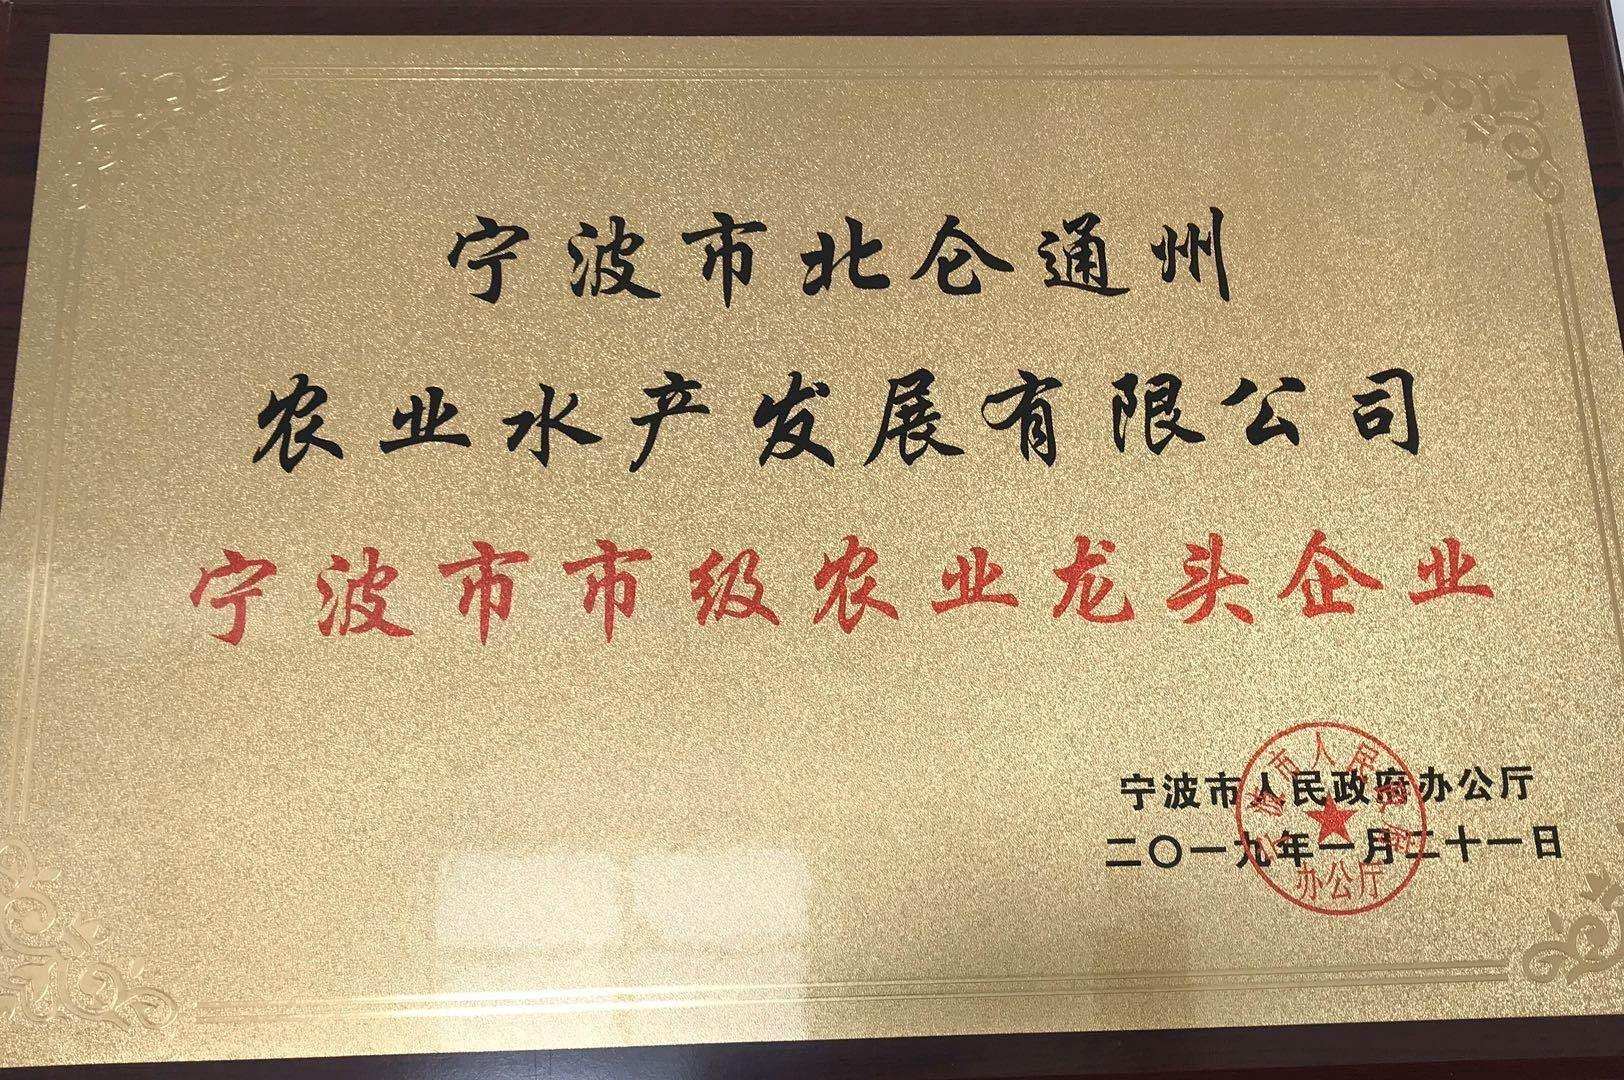 宁波市北仑通州
农业水产发展有限公司
宁波市市级农业龙头企业
宁波市人民政府办公厅
二〇一九年一月二十一日
办公厅